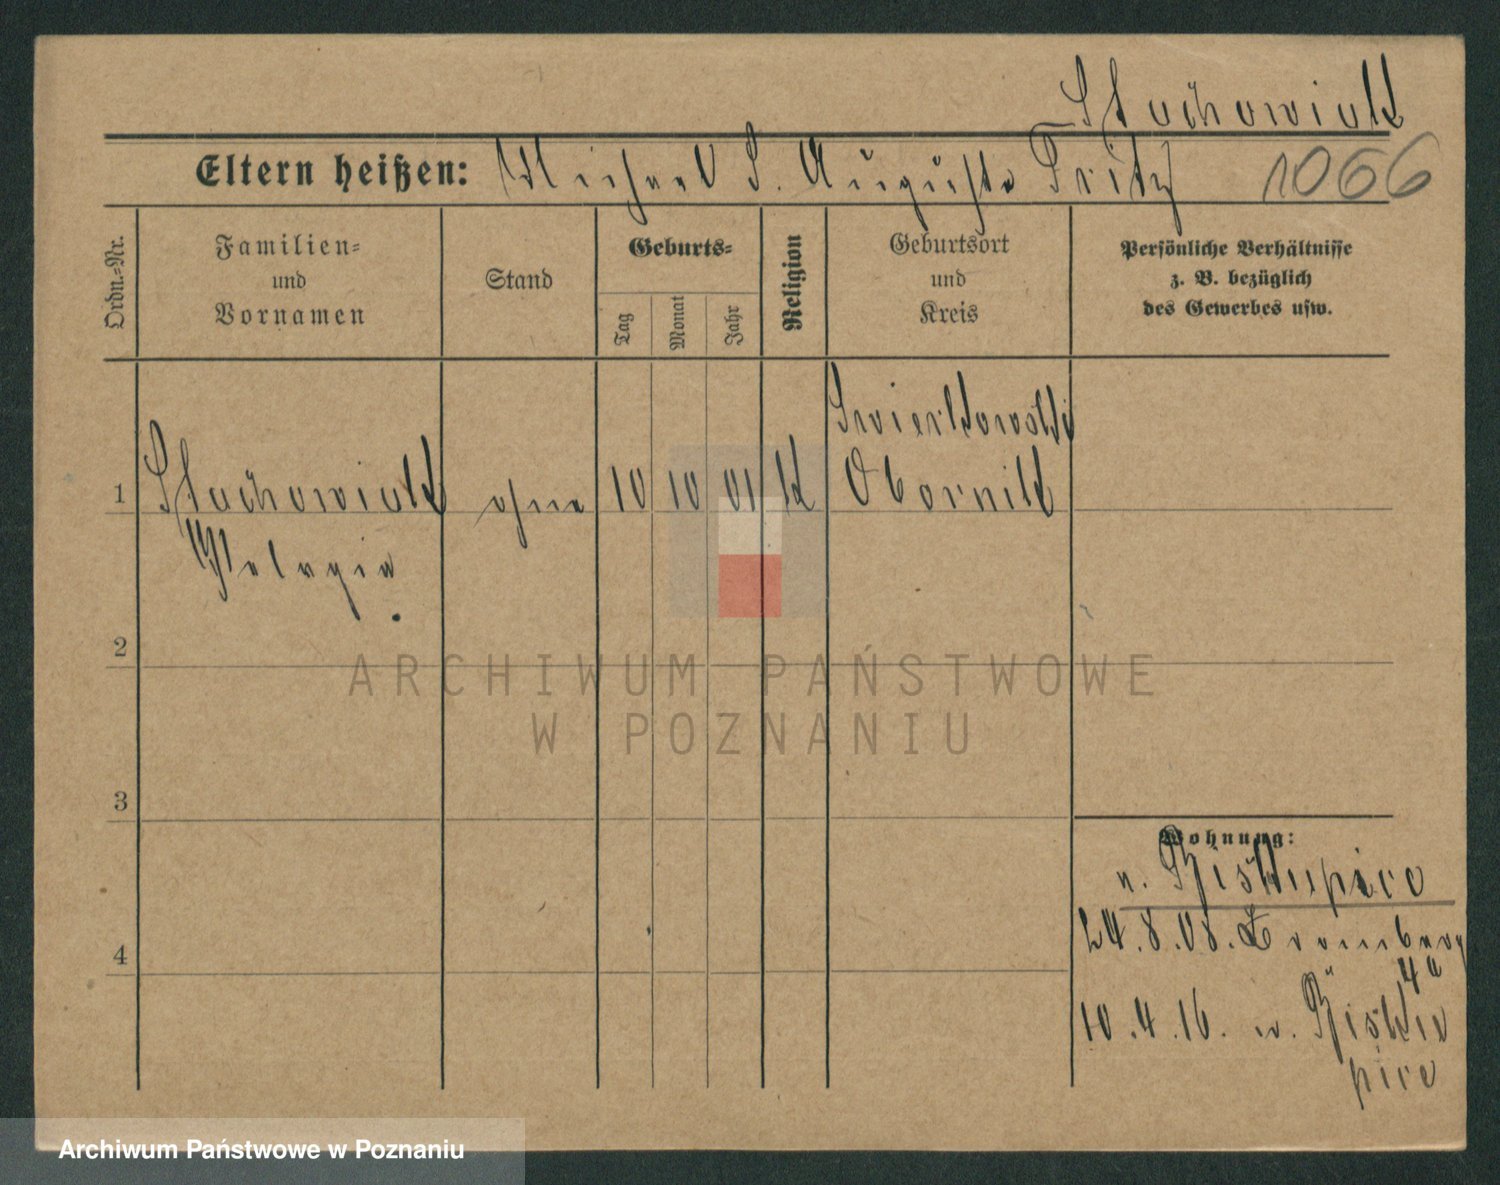 Stachowiak
Eltern heißen: Michael S. Auguste Fritz 1066
Ordn.=Nr.
Familien=
und
Vornamen
Stand
Geburts=
Tag
Monat
Jahr
Religion
Geburtsort
und
Kreis
Persönliche Verhältnisse
z. B. bezüglich
des Gewerbes usw.
1
Stachowiak
Pelagia
ohne
10
10
01
K
Obornik
2
3
4
Wohnung:
n. Biskupice
24.8.08. Bromberg
4a
10.4.16. n. Bisku
pice
ARCHIWUM PAŃSTWOWE
W POZNANIU
Archiwum Państwowe w Poznaniu